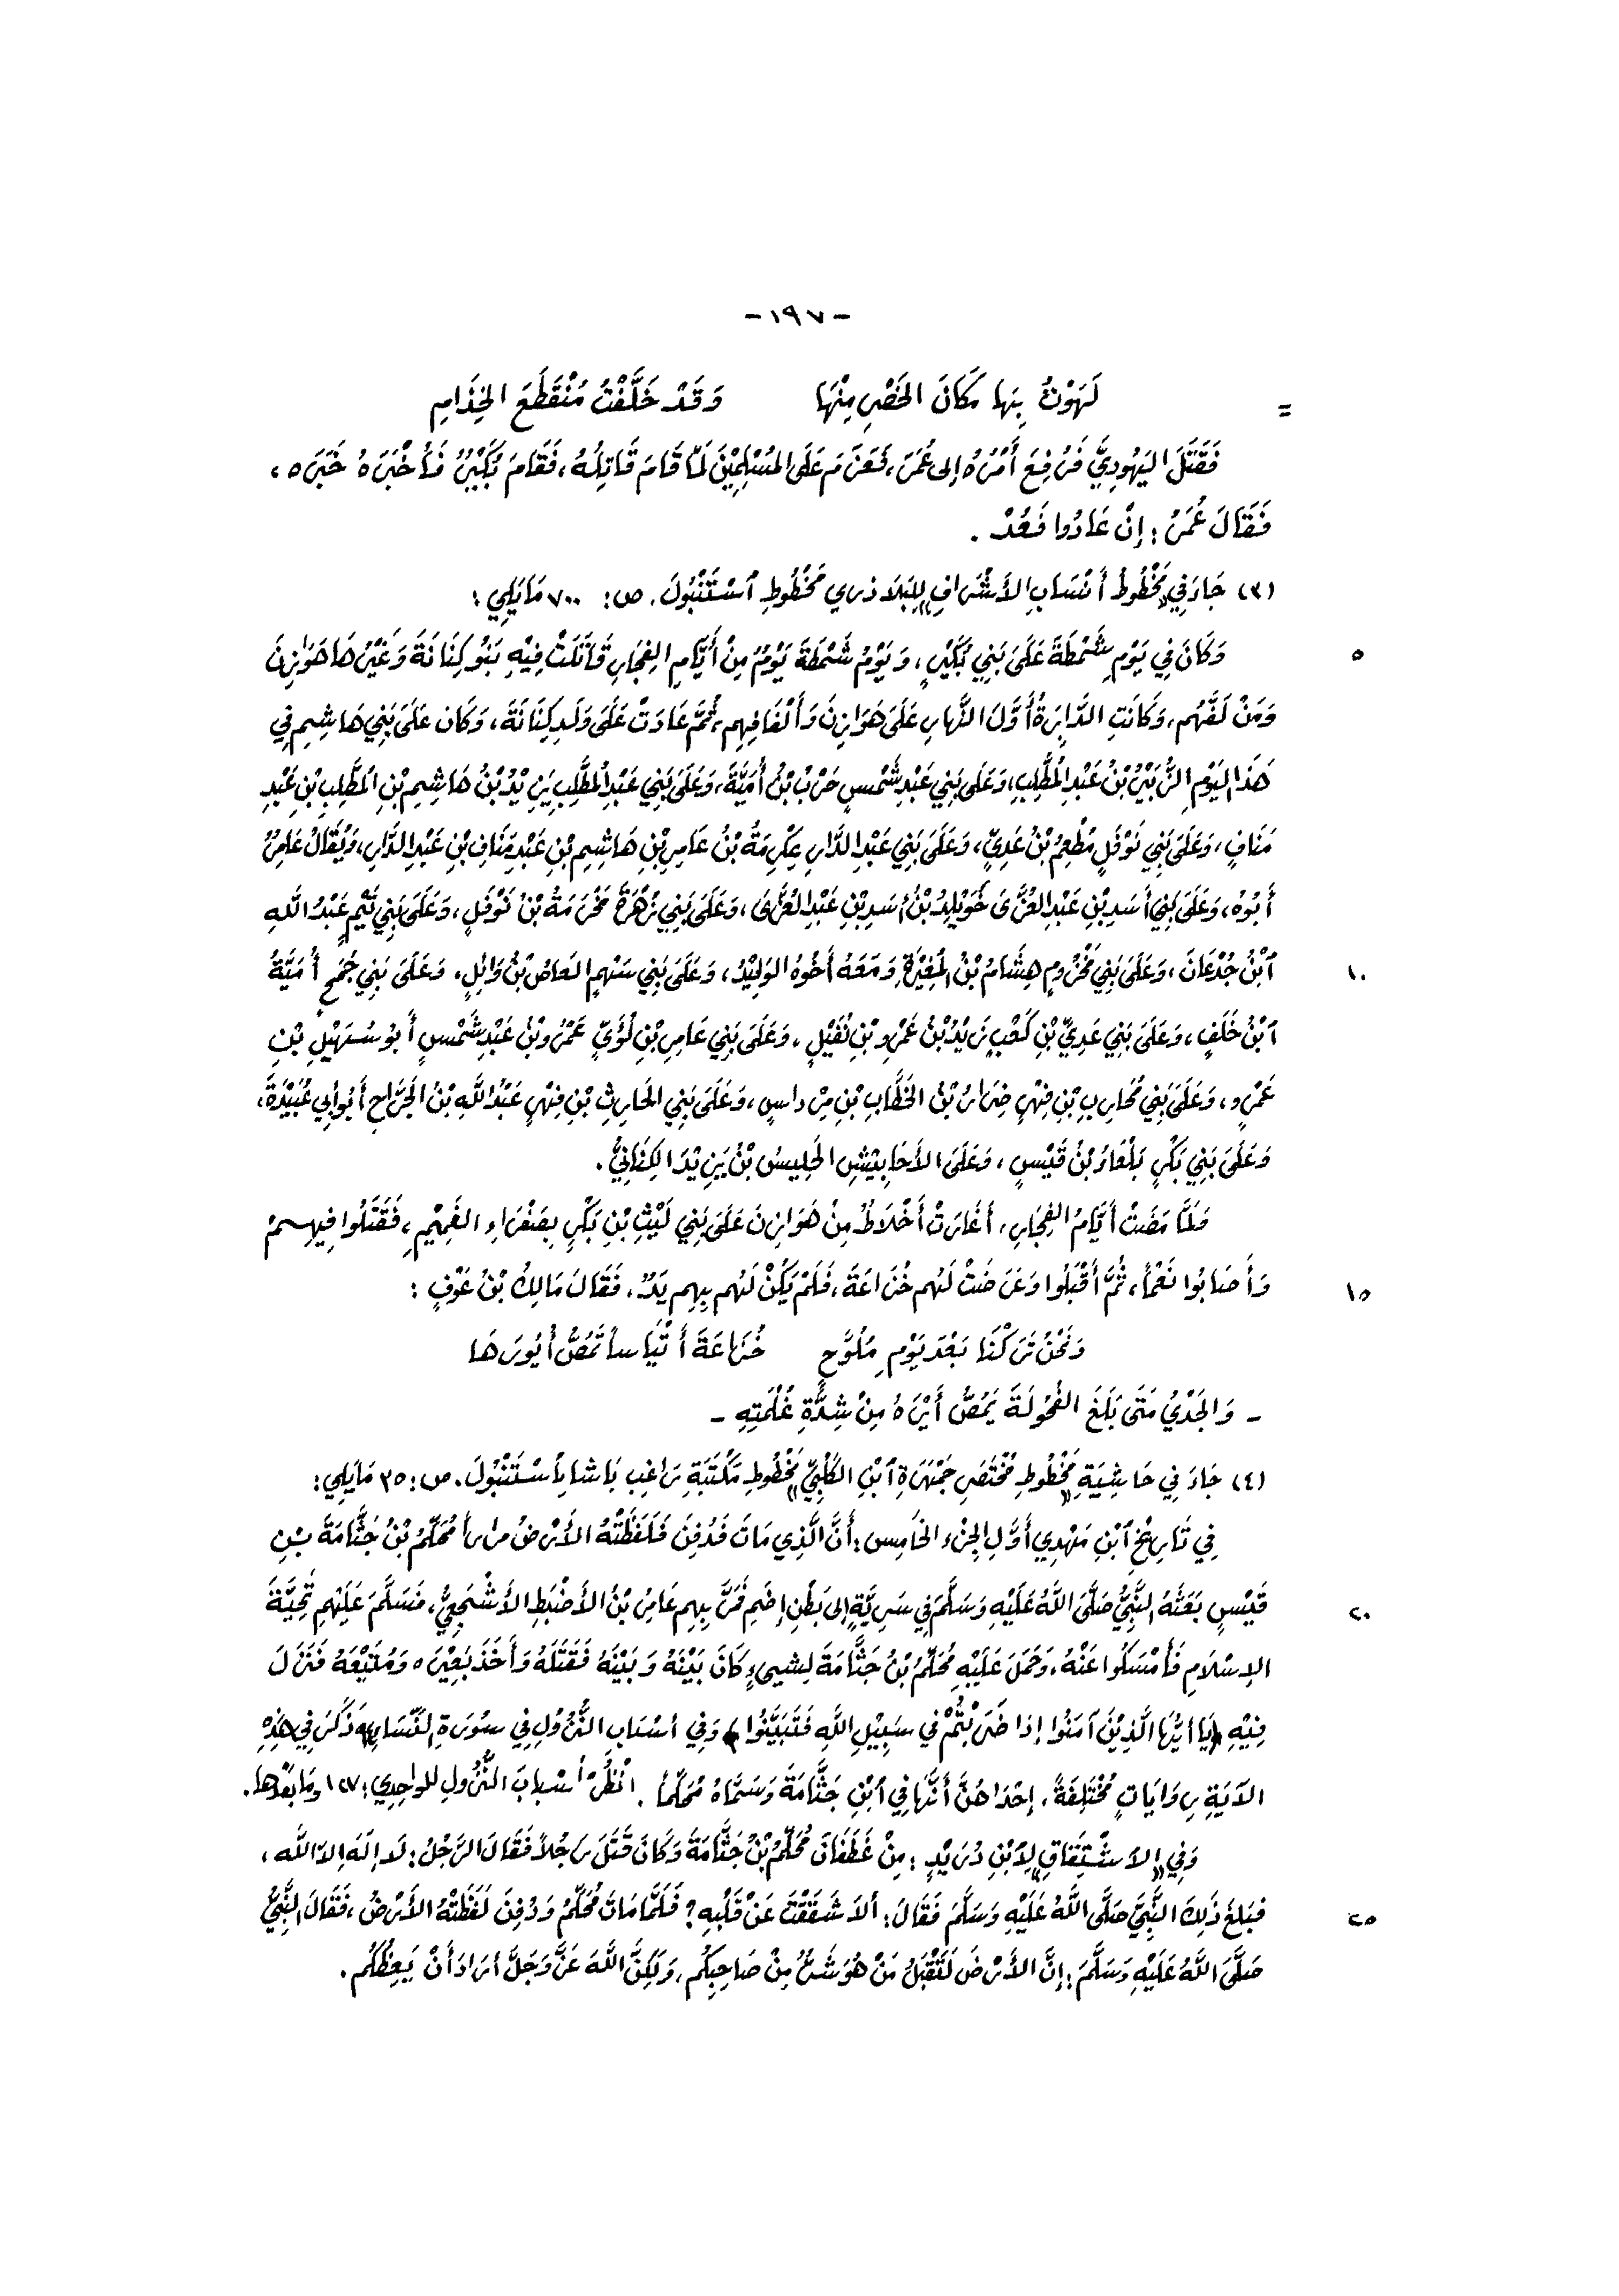 -١٩٧-
= لَهَوْتُ بِهَا مَكَانَ الخَصْرِ مِنْهَا وَقَدْ خَلَّفْتُ مُنْقَطَعَ الخِذَامِ
فَقَتَلَ اليَهُودِيَّ فَرُفِعَ أَمْرُهُ إلى عُمَرَ، فَعَزَمَ عَلَى المُسْلِمِيْنَ لَمَّا قَامَ قَاتِلُهُ، فَقَامَ بُكَيْرٌ فَأَخْبَرَهُ خَبَرَه،
فَقَالَ عُمَرُ: إنْ عَادُوا فَعُدْ.
(٣) جَاءَ فِي «مَخْطُوطُ أَنْسَابِ الأَشْرَافِ» لِلبَلَاذري مَخْطُوطِ ٱسْتَنْبُولَ. ص: ٧٠٠ مَايَلِي:
وَكَانَ فِي يَوْمِ شَمْطَةَ عَلَى بَنِي بُكَيْرٍ، وَيَوْمُ شَمْطَةَ يَوْمٌ مِنْ أَيَّامِ الفِجَارِ قَاتَلَتْ فِيْهِ بَنُو كِنَانَةَ وَغَيْرُهَا هَوَازِنَ ٥
وَمَنْ لَفَّهُم، وَكَانَتِ الدَّابِرَةُ أَوَّلَ النَّهَارِ عَلَى هَوَازِنَ وَأَلْفَافِهِم، ثُمَّ عَادَتْ عَلَى وَلَدِ كِنَانَةَ، وَكَان عَلَى بَنِي هَاشِمٍ فِي
هَذَا اليَوْمِ الزُّبَيْرُ بْنُ عَبْدِ المُطَّلِبِ، وَعَلَى بَنِي عَبْدِ شَمْسٍ حَرْبُ بْنُ أُمَيَّةَ، وَعَلَى بَنِي عَبْدِ المُطَّلِبِ يَزِيْدُ بْنُ هَاشِمِ بْنِ المُطَّلِبِ بْنِ عَبْدِ
مَنَافٍ، وَعَلَى بَنِي نَوْفَلٍ مُطْعِمُ بْنُ عَدِيٍّ، وَعَلَى بَنِي عَبْدِ الدَّارِ عِكْرِمَةُ بْنُ عَامِرِ بْنِ هَاشِمِ بْنِ عَبْدِ مَنَافِ بْنِ عَبْدِ الدَّارِ، وَيُقَالُ عَامِرٌ
أَبُوهُ، وَعَلَى بَنِي أَسَدِ بْنِ عَبْدِ العُزَّى خُوَيْلِدُ بْنُ أَسَدِ بْنِ عَبْدِ العُزَّى، وَعَلَى بَنِي زُهْرَةَ مَخْرَمَةُ بْنُ نَوْفَلٍ، وَعَلَى بَنِي تَيْمٍ عَبْدُ اللَّهِ
ٱبْنُ جُدْعَانَ، وَعَلَى بَنِي مَخْزُومٍ هِشَامُ بْنُ المُغِيْرَةِ وَمَعَهُ أَخُوهُ الوَلِيْدُ، وَعَلَى بَنِي سَهْمٍ العَاصُ بْنُ وَائِلٍ، وَعَلَى بَنِي جُمَحٍ أُمَيَّةُ ١٠
ٱبْنُ خَلَفٍ، وَعَلَى بَنِي عَدِيِّ بْنِ كَعْبٍ زَيْدُ بْنُ عَمْرِو بْنِ نُفَيْلٍ، وَعَلَى بَنِي عَامِرِ بْنِ لُؤَيٍّ عَمْرُو بْنُ عَبْدِ شَمْسٍ أَبُو سُهَيْلِ بْنِ
عَمْرٍو، وَعَلَى بَنِي مُحَارِبِ بْنِ فِهْرٍ ضِرَارُ بْنُ الخَطَّابِ بْنِ مِرْداسٍ، وَعَلَى بَنِي الحَارِثِ بْنِ فِهْرٍ عَبْدُ اللَّهِ بْنُ الجَرَّاحِ أَبُو أَبِي عُبَيْدَةَ،
وَعَلَى بَنِي بَكْرٍ بَلْعَاءُ بْنُ قَيْسٍ، وَعَلَى الأَحَابِيْشِ الحُلِيسُ بْنُ يَزِيْدَ الكِنَانِيُّ.
وَلَمَّا مَضَتْ أَيَّامُ الفِجَارِ، أَغَارَتْ أَخْلَاطٌ مِنْ هَوَازِنَ عَلَى بَنِي لَيْثِ بْنِ بَكْرٍ بِصَفْرَاءِ الغَمِيْمِ، فَقَتَلُوا فِيهِمْ
وَأَصَابُوا نَعَمْاً، ثُمَّ أَقْبَلُوا وَعَرَضَتْ لَهُم خُزَاعَةَ، فَلَمْ يَكُنْ لَهُم بِهِم يَدٌ، فَقَالَ مَالِكُ بْنُ عَوْفٍ: ١٥
وَنَحْنُ تَرَكْنَا بَعْدَ يَوْمِ مُلَوَّحٍ خُزَاعَةَ أَتْيَاساً تَمُصُّ أُيُورَهَا
- وَالجَدْيُ مَتَى بَلَغَ الفُحُولَةَ يَمُصُّ أَيْرَهُ مِنْ شِدَّةِ غُلْمَتِهِ -
(٤) جَاءَ فِي حَاشِيَةِ «مَخْطُوطِ مُخْتَصَرِ جَمْهَرَةِ ٱبْنِ الكَلْبِيِّ» مَخْطُوطِ مَكْتَبَةِ رَاغِب بَاشا بِأسْتَنْبُولَ. ص: ٣٥ مَايَلِي:
فِي تَارِيْخِ ٱبْنِ مَهْدِي أَوَّلِ الجِزْءِ الخَامِس: أَنَّ الَّذِي مَاتَ فَدُفِنَ فَلَفَظَتْهُ الأَرْضُ مراراً مُحَلِّمُ بْنُ جَثَّامَةَ بْنِ
قَيْسٍ بَعَثَهُ النَّبِيُّ صَلَّى اللَّهُ عَلَيْهِ وَسَلَّمَ فِي سَرِيَّةٍ إلى بَطْنِ إِضَمٍ فَمَرَّ بِهِم عَامِرُ بْنُ الأَضْبَطِ الأَشْجَعِيُّ، فَسَلَّمَ عَلَيْهِم تَحِيَّةَ ٢٠
الإسْلَامِ فَأَمْسَكُوا عَنْهُ، وَحَمَلَ عَلَيْهِ مُحَلِّمُ بْنُ جَثَّامَةَ لِشَيءٍ كَانَ بَيْنَهُ وَبَيْنَهُ فَقَتَلَهُ وَأَخَذَ بَعِيْرَه وَمُتَيِّعَهُ فَنَزَلَ
فِيْهِ ﴿يَا أَيُّهَا الَّذِيْنَ آمَنُوا إِذَا ضَرَبْتُمْ فِي سَبِيْلِ اللَّهِ فَتَبَيَّنُوا﴾ وَفِي أَسْبَابِ النُّزُولِ فِي سُوْرَةِ «النِّسَاءِ» ذَكَرَ فِي هَذِهِ
الآيَةِ رِوَايَاتٍ مُخْتَلِفَةً، إحْدَاهُنَّ أَنَّهَا فِي ٱبْنِ جَثَّامَةَ وَسَمَّاهُ مُحَلِّماً. انْظُرْ أَسْبَابَ النُّزُولِ للواحِدِي: ١٢٧ وَمَا بَعْدَها.
وَفِي «الاشْتِقَاقِ» لِابْنِ دُرَيْدٍ: مِنْ غَطَفَانَ مُحَلِّمُ بْنُ جَثَّامَةَ وَكَانَ قَتَلَ رَجُلاً فَقَالَ الرَّجُلُ: لا إلَهَ إلاّ اللَّه،
فبَلغَ ذَلِكَ النَّبِيَّ صَلَّى اللَّهُ عَلَيْهِ وَسَلَّمَ فَقَالَ: أَلاَ شَقَقْتَ عَنْ قَلْبِهِ؟ فَلَمَّا مَاتَ مُحَلِّمٌ وَدُفِنَ لَفَظَتْهُ الأَرْضُ، فَقَالَ النَّبِيُّ ٢٥
صَلَّى اللَّهُ عَلَيْهِ وَسَلَّمَ: إنَّ الأَرْضَ لَتَقْبَلُ مَنْ هُوَ شَرٌّ مِنْ صَاحِبِكُم، وَلَكِنَّ اللَّهَ عَزَّ وَجَلَّ أَرَادَ أَنْ يَعِظَكُم.